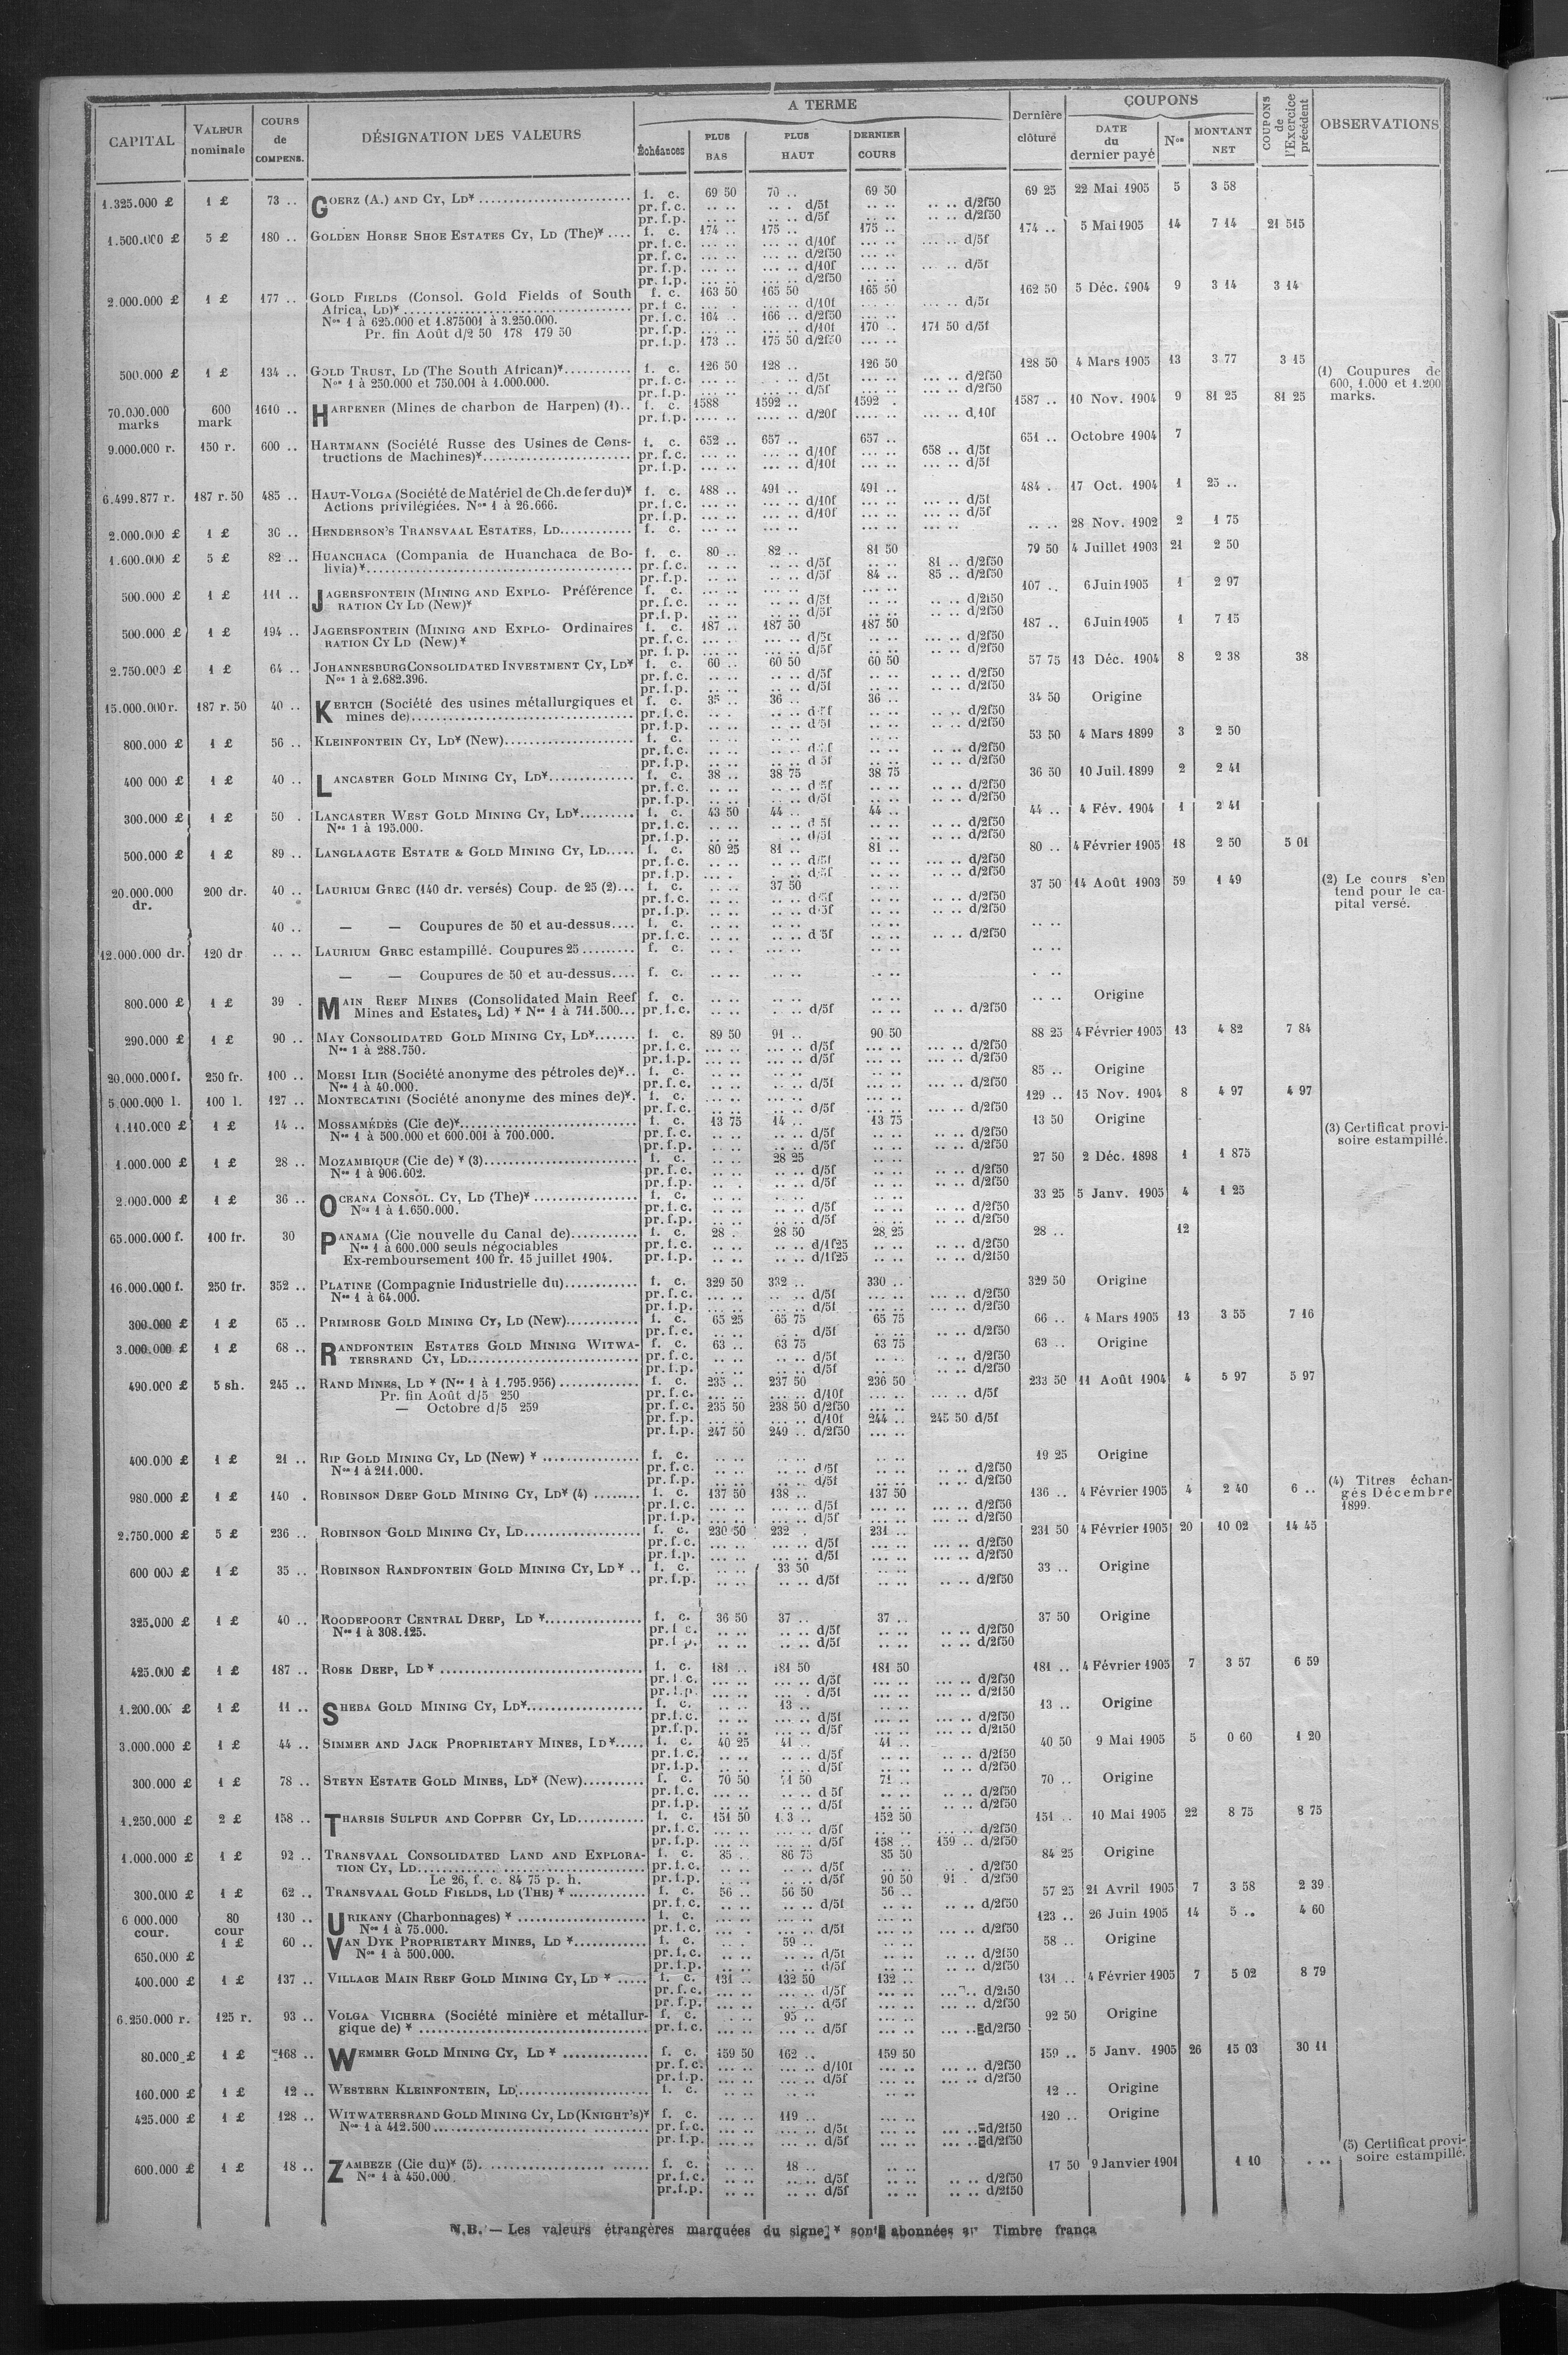 CAPITAL | VALEUR nominale | COURS de COMPENS. | DÉSIGNATION DES VALEURS | A TERME | Dernière clôture | COUPONS | COUPONS de l'Exercice précédent | OBSERVATIONS
Échéances | PLUS BAS | PLUS HAUT | DERNIER COURS | DATE du dernier payé | Nos | MONTANT NET
1.325.000 £ | 1 £ | 73 .. | GOERZ (A.) AND CY, LD* | f. c. | 69 50 | 70 .. | 69 50 | 69 25 | 22 Mai 1905 | 5 | 3 58
pr. f. c. | .. .. | .. . d/5f | .. .. | .. .. d/2f50
pr. f. p. | .. .. | .. .. d/5f | .. .. | .. .. d/2f50
1.500.000 £ | 5 £ | 180 .. | GOLDEN HORSE SHOE ESTATES CY, LD (The)* | f. c. | 174 .. | 175 .. | 175 .. | 174 .. | 5 Mai 1905 | 14 | 7 14 | 21 515
pr. f. c. | ... .. | ... .. d/10f | ... .. | ... .. d/5f
pr. f. c. | ... .. | ... .. d/2f50
pr. f. p. | ... .. | ... .. d/10f | ... .. | .. .. d/5f
pr. f. p. | ... .. | ... .. d/2f50
2.000.000 £ | 1 £ | 177 .. | GOLD FIELDS (Consol. Gold Fields of South | f. c. | 163 50 | 165 50 | 165 50 | 162 50 | 5 Déc. 1904 | 9 | 3 14 | 3 14
Africa, LD)* | pr. f. c. | ... . | ... .. d/10f | ... .. | ... .. d/5f
Nos 1 à 625.000 et 1.875001 à 3.250.000. | pr. f. c. | 164 .. | 166 .. d/2f50 | ... ..
Pr. fin Août d/2 50 178 179 50 | pr. f. p. | ... .. | ... .. d/10f | 170 .. | 171 50 d/5f
pr. f. p. | 173 .. | 175 50 d/2f50 | ... ..
500.000 £ | 1 £ | 134 .. | GOLD TRUST, LD (The South African)* | f. c. | 126 50 | 128 .. | 126 50 | 128 50 | 4 Mars 1905 | 13 | 3 77 | 3 15 | (1) Coupures de
Nos 1 à 250.000 et 750.001 à 1.000.000. | pr. f. c. | ... .. | . .. d/5f | ... .. | ... .. d/2f50 | 600, 1.000 et 1.200
pr. f. p. | ... .. | ... .. d/5f | ... .. | ... .. d/2f50 | marks.
70.000.000 marks | 600 mark | 1610 .. | HARPENER (Mines de charbon de Harpen) (1) | f. c. | 1588 | 1592 .. | 1592 . | 1587 .. | 10 Nov. 1904 | 9 | 81 25 | 81 25
pr. f. p. | .... .. | .... .. d/20f | .... .. | ... .. d.10f
9.000.000 r. | 150 r. | 600 .. | HARTMANN (Société Russe des Usines de Cons- | f. c. | 652 .. | 657 .. | 657 .. | 651 .. | Octobre 1904 | 7
tructions de Machines)* | pr. f. c. | ... .. | ... .. d/10f | ... .. | 658 .. d/5f
pr. f. p. | ... .. | ... .. d/10f | ... .. | ... .. d/5f
6.499.877 r. | 187 r. 50 | 485 .. | HAUT-VOLGA (Société de Matériel de Ch. de fer du)* | f. c. | 488 .. | 491 .. | 491 .. | 484 .. | 17 Oct. 1904 | 1 | 25 ..
Actions privilégiées. Nos 1 à 26.666. | pr. f. c. | ... .. | ... .. d/10f | ... .. | ... .. d/5f
pr. f. p. | ... .. | ... .. d/10f | ... .. | ... .. d/5f
2.000.000 £ | 1 £ | 36 .. | HENDERSON'S TRANSVAAL ESTATES, LD | f. c. | ... .. | ... .. | ... .. | .. .. | 28 Nov. 1902 | 2 | 1 75
1.600.000 £ | 5 £ | 82 .. | HUANCHACA (Compania de Huanchaca de Bo- | f. c. | 80 .. | 82 .. | 81 50 | 79 50 | 4 Juillet 1903 | 21 | 2 50
livia)* | pr. f. c. | .. .. | .. .. d/5f | .. .. | 81 .. d/2f50
pr. f. p. | .. .. | .. .. d/5f | 84 .. | 85 .. d/2f50
500.000 £ | 1 £ | 111 .. | JAGERSFONTEIN (MINING AND EXPLO- Préférence | f. c. | ... .. | ... .. | ... .. | 107 .. | 6 Juin 1905 | 1 | 2 97
RATION CY LD (New)* | pr. f. c. | .. .. | .. .. d/5f | .. .. | .. .. d/2f50
pr. f. p. | .. .. | .. .. d/5f | .. .. | .. .. d/2f50
500.000 £ | 1 £ | 194 .. | JAGERSFONTEIN (MINING AND EXPLO- Ordinaires | f. c. | 187 .. | 187 50 | 187 50 | 187 .. | 6 Juin 1905 | 1 | 7 15
RATION CY LD (New)* | pr. f. c. | ... .. | ... .. d/5f | ... .. | ... .. d/2f50
pr. f. p. | ... .. | ... .. d/5f | .. .. | ... .. d/2f50
2.750.000 £ | 1 £ | 64 .. | JOHANNESBURG CONSOLIDATED INVESTMENT CY, LD* | f. c. | 60 .. | 60 50 | 60 50 | 57 75 | 13 Déc. 1904 | 8 | 2 38 | 38
Nos 1 à 2.682.396. | pr. f. c. | .. .. | .. .. d/5f | .. .. | .. .. d/2f50
pr. f. p. | .. .. | .. .. d/5f | .. .. | .. .. d/2f50
15.000.000 r. | 187 r. 50 | 40 .. | KERTCH (Société des usines métallurgiques et | f. c. | 35 .. | 36 .. | 36 .. | 34 50 | Origine
mines de) | pr. f. c. | .. . | .. .. d 5f | .. .. | .. .. d/2f50
pr. f. p. | .. .. | .. .. d 5f | .. .. | .. .. d/2f50
800.000 £ | 1 £ | 56 .. | KLEINFONTEIN CY, LD* (New) | f. c. | .. .. | .. .. | .. .. | 53 50 | 4 Mars 1899 | 3 | 2 50
pr. f. c. | .. .. | .. .. d 5f | .. .. | .. .. d/2f50
pr. f. p. | .. .. | .. .. d 5f | .. .. | .. .. d/2f50
400 000 £ | 1 £ | 40 .. | LANCASTER GOLD MINING CY, LD* | f. c. | 38 .. | 38 75 | 38 75 | 36 50 | 10 Juil. 1899 | 2 | 2 41
pr. f. c. | .. .. | .. .. d 5f | .. .. | .. .. d/2f50
pr. f. p. | .. .. | .. .. d/5f | .. .. | .. .. d/2f50
300.000 £ | 1 £ | 50 . | LANCASTER WEST GOLD MINING CY, LD* | f. c. | 43 50 | 44 .. | 44 .. | 44 .. | 4 Fév. 1904 | 1 | 2 41
Nos 1 à 195.000. | pr. f. c. | .. .. | .. .. d 5f | .. .. | .. .. d/2f50
pr. f. p. | .. .. | .. d/5f | .. .. | .. .. d/2f50
500.000 £ | 1 £ | 89 .. | LANGLAAGTE ESTATE & GOLD MINING CY, LD | f. c. | 80 25 | 81 .. | 81 .. | 80 .. | 4 Février 1905 | 18 | 2 50 | 5 01
pr. f. c. | .. .. | .. .. d/5f | .. .. | ... .. d/2f50
pr. f. p. | ... .. | . .. d/5f | .. .. | .. .. d/2f50
20.000.000 dr. | 200 dr. | 40 .. | LAURIUM GREC (140 dr. versés) Coup. de 25 (2) | f. c. | .. .. | 37 50 | .. .. | 37 50 | 14 Août 1903 | 59 | 1 49 | (2) Le cours s'en
pr. f. c. | .. .. | .. .. d/5f | .. .. | .. .. d/2f50 | tend pour le ca-
pr. f. p. | .. .. | .. .. d/5f | .. .. | .. .. d/2f50 | pital versé.
40 .. | — — Coupures de 50 et au-dessus | f. c. | .. .. | .. .. | .. .. | .. ..
pr. f. c. | .. .. | .. .. d 5f | .. .. | .. .. d/2f50
12.000.000 dr. | 120 dr | .. .. | LAURIUM GREC estampillé. Coupures 25 | f. c. | .. .. | .. .. | .. .. | .. ..
— — Coupures de 50 et au-dessus | f. c. | .. .. | .. .. | .. .. | . ..
800.000 £ | 1 £ | 39 . | MAIN REEF MINES (Consolidated Main Reef | f. c. | .. .. | .. .. | .. .. | .. .. | Origine
Mines and Estates, Ld) * Nos 1 à 711.500 | pr. f. c. | .. .. | .. .. d/5f | .. .. | .. .. d/2f50
290.000 £ | 1 £ | 90 .. | MAY CONSOLIDATED GOLD MINING CY, LD* | f. c. | 89 50 | 91 .. | 90 50 | 88 25 | 4 Février 1905 | 13 | 4 82 | 7 84
Nos 1 à 288.750. | pr. f. c. | ... .. | ... .. d/5f | ... .. | ... .. d/2f50
pr. f. p. | ... .. | ... .. d/5f | ... .. | ... .. d/2f50
20.000.000 f. | 250 fr. | 100 .. | MOESI ILIR (Société anonyme des pétroles de)* | f. c. | ... .. | ... .. | ... .. | 85 .. | Origine
Nos 1 à 40.000. | pr. f. c. | .. .. | .. .. d/5f | .. .. | ... .. d/2f50
5.000.000 l. | 100 l. | 127 .. | MONTECATINI (Société anonyme des mines de)* | f. c. | ... .. | ... .. | ... .. | 129 .. | 15 Nov. 1904 | 8 | 4 97 | 4 97
pr. f. c. | .. .. | .. .. d/5f | .. .. | ... .. d/2f50
1.110.000 £ | 1 £ | 14 .. | MOSSAMÉDÈS (Cie de)* | f. c. | 13 75 | 14 .. | 13 75 | 13 50 | Origine | (3) Certificat provi-
Nos 1 à 500.000 et 600.001 à 700.000. | pr. f. c. | .. .. | .. .. d/5f | .. .. | .. .. d/2f50 | soire estampillé.
pr. f. p. | .. .. | .. .. d/5f | .. .. | .. .. d/2f50
1.000.000 £ | 1 £ | 28 .. | MOZAMBIQUE (Cie de) * (3) | f. c. | .. .. | 28 25 | .. .. | 27 50 | 2 Déc. 1898 | 1 | 1 875
Nos 1 à 906.602. | pr. f. c. | .. .. | .. .. d/5f | .. .. | .. .. d/2f50
pr. f. p. | .. .. | .. .. d/5f | .. .. | .. .. d/2f50
2.000.000 £ | 1 £ | 36 .. | OCEANA CONSOL. CY, LD (The)* | f. c. | .. .. | .. .. | .. .. | 33 25 | 5 Janv. 1905 | 4 | 1 25
Nos 1 à 1.650.000. | pr. f. c. | .. .. | .. .. d/5f | .. .. | .. .. d/2f50
pr. f. p. | .. .. | .. .. d/5f | .. .. | .. .. d/2f50
65.000.000 f. | 100 fr. | 30 | PANAMA (Cie nouvelle du Canal de) | f. c. | 28 . | 28 50 | 28 25 | 28 .. | 12
Nos 1 à 600.000 seuls négociables | pr. f. c. | .. .. | .. .. d/1f25 | .. .. | .. .. d/2f50
Ex-remboursement 100 fr. 15 juillet 1904. | pr. f. p. | .. .. | .. .. d/1f25 | .. .. | .. .. d/2f50
16.000.000 f. | 250 fr. | 352 .. | PLATINE (Compagnie Industrielle du) | f. c. | 329 50 | 332 .. | 330 .. | 329 50 | Origine
Nos 1 à 64.000. | pr. f. c. | ... .. | ... .. d/5f | ... .. | ... .. d/2f50
pr. f. p. | ... .. | ... .. d/5f | ... .. | ... .. d/2f50
300.000 £ | 1 £ | 65 .. | PRIMROSE GOLD MINING CY, LD (New) | f. c. | 65 25 | 65 75 | 65 75 | 66 .. | 4 Mars 1905 | 13 | 3 55 | 7 16
pr. f. c. | .. .. | ... .. d/5f | .. .. | ... .. d/2f50
3.000.000 £ | 1 £ | 68 .. | RANDFONTEIN ESTATES GOLD MINING WITWA- | f. c. | 63 .. | 63 75 | 63 75 | 63 .. | Origine
TERSRAND CY, LD | pr. f. c. | .. .. | .. .. d/5f | .. .. | .. .. d/2f50
pr. f. p. | .. .. | .. .. d/5f | .. .. | .. .. d/2f50
490.000 £ | 5 sh. | 245 .. | RAND MINES, LD * (Nos 1 à 1.795.956) | f. c. | 235 .. | 237 50 | 236 50 | 233 50 | 11 Août 1904 | 4 | 5 97 | 5 97
Pr. fin Août d/5 250 | pr. f. c. | ... .. | ... .. d/10f | ... .. | ... .. d/5f
— Octobre d/5 259 | pr. f. c. | 235 50 | 238 50 d/2f50 | ... ..
pr. f. p. | ... .. | ... .. d/10f | 244 .. | 245 50 d/5f
pr. f. p. | 247 50 | 249 .. d/2f50 | ... ..
400.000 £ | 1 £ | 21 .. | RIP GOLD MINING CY, LD (New) * | f. c. | .. .. | .. .. | .. .. | 19 25 | Origine
Nos 1 à 211.000. | pr. f. c. | .. .. | .. .. d/5f | .. .. | .. .. d/2f50
pr. f. p. | .. .. | .. .. d/5f | .. .. | .. .. d/2f50 | (4) Titres échan-
980.000 £ | 1 £ | 140 . | ROBINSON DEEP GOLD MINING CY, LD* (4) | f. c. | 137 50 | 138 .. | 137 50 | 136 .. | 4 Février 1905 | 4 | 2 40 | 6 .. | gés Décembre
pr. f. c. | ... .. | ... .. d/5f | ... .. | ... .. d/2f50 | 1899.
pr. f. p. | ... .. | ... .. d/5f | ... .. | ... .. d/2f50
2.750.000 £ | 5 £ | 236 .. | ROBINSON GOLD MINING CY, LD | f. c. | 230 50 | 232 . | 231 .. | 231 50 | 4 Février 1905 | 20 | 10 02 | 14 45
pr. f. c. | ... .. | ... .. d/5f | ... .. | ... .. d/2f50
pr. f. p. | ... .. | ... .. d/5f | ... .. | ... .. d/2f50
600 000 £ | 1 £ | 35 .. | ROBINSON RANDFONTEIN GOLD MINING CY, LD* | f. c. | .. .. | 33 50 | .. .. | 33 .. | Origine
pr. f. p. | .. .. | .. .. d/5f | .. .. | .. .. d/2f50
325.000 £ | 1 £ | 40 .. | ROODEPOORT CENTRAL DEEP, LD * | f. c. | 36 50 | 37 .. | 37 .. | 37 50 | Origine
Nos 1 à 308.125. | pr. f. c. | .. .. | .. .. d/5f | .. .. | .. .. d/2f50
pr. f. p. | .. .. | .. .. d/5f | .. .. | .. .. d/2f50
425.000 £ | 1 £ | 187 .. | ROSE DEEP, LD * | f. c. | 181 .. | 181 50 | 181 50 | 181 .. | 4 Février 1905 | 7 | 3 57 | 6 59
pr. f. c. | ... .. | ... .. d/5f | ... .. | ... .. d/2f50
pr. f. p. | ... .. | ... . d/5f | ... .. | ... .. d/2f50
1.200.00 £ | 1 £ | 11 .. | SHEBA GOLD MINING CY, LD* | f. c. | .. .. | 13 .. | .. .. | 13 .. | Origine
pr. f. c. | .. .. | .. .. d/5f | .. .. | .. .. d/2f50
pr. f. p. | .. .. | .. .. d/5f | .. .. | .. .. d/2f50
3.000.000 £ | 1 £ | 44 .. | SIMMER AND JACK PROPRIETARY MINES, LD* | f. c. | 40 25 | 41 .. | 41 .. | 40 50 | 9 Mai 1905 | 5 | 0 60 | 1 20
pr. f. c. | .. .. | .. .. d/5f | .. .. | .. .. d/2f50
pr. f. p. | .. .. | .. .. d/5f | .. .. | .. .. d/2f50
300.000 £ | 1 £ | 78 .. | STEYN ESTATE GOLD MINES, LD* (New) | f. c. | 70 50 | 71 50 | 71 .. | 70 .. | Origine
pr. f. c. | ... .. | .. .. d 5f | .. .. | .. .. d/2f50
pr. f. p. | .. .. | .. .. d/5f | .. .. | .. .. d/2f50
1.250.000 £ | 2 £ | 158 .. | THARSIS SULFUR AND COPPER CY, LD | f. c. | 151 50 | 1 3 .. | 152 50 | 151 .. | 10 Mai 1905 | 22 | 8 75 | 8 75
pr. f. c. | ... .. | ... .. d/5f | ... .. | ... .. d/2f50
pr. f. p. | ... .. | ... .. d/5f | 158 .. | 159 .. d/2f50
1.000.000 £ | 1 £ | 92 .. | TRANSVAAL CONSOLIDATED LAND AND EXPLORA- | f. c. | 85 .. | 86 75 | 85 50 | 84 25 | Origine
TION CY, LD | pr. f. c. | .. .. | .. .. d/5f | .. .. | .. . d/2f50
Le 26, f. c. 84 75 p. h. | pr. f. p. | .. .. | .. .. d/5f | 90 50 | 91 . d/2f50
300.000 £ | 1 £ | 62 .. | TRANSVAAL GOLD FIELDS, LD (THE) * | f. c. | 56 .. | 56 50 | 56 .. | 57 25 | 21 Avril 1905 | 7 | 3 58 | 2 39
pr. f. c. | .. .. | .. .. d/5f | .. .. | .. .. d/2f50
6 000.000 cour. | 80 cour | 130 .. | URIKANY (Charbonnages) * | f. c. | ... .. | ... .. | ... .. | 123 .. | 26 Juin 1905 | 14 | 5 .. | 4 60
Nos 1 à 75.000. | pr. f. c. | ... .. | ... .. d/5f | ... .. | ... .. d/2f50
650.000 £ | 1 £ | 60 .. | VAN DYK PROPRIETARY MINES, LD * | f. c. | .. . | 59 .. | .. .. | 58 .. | Origine
Nos 1 à 500.000. | pr. f. c. | .. .. | .. .. d/5f | .. .. | .. .. d/2f50
pr. f. p. | .. .. | .. .. d/5f | .. .. | .. .. d/2f50
400.000 £ | 1 £ | 137 .. | VILLAGE MAIN REEF GOLD MINING CY, LD * | f. c. | 131 .. | 132 50 | 132 .. | 131 .. | 4 Février 1905 | 7 | 5 02 | 8 79
pr. f. c. | ... .. | ... .. d/5f | ... .. | ... .. d/2f50
pr. f. p. | ... .. | ... .. d/5f | ... .. | ... .. d/2f50
6.250.000 r. | 125 r. | 93 .. | VOLGA VICHERA (Société minière et métallur- | f. c. | . .. | 95 .. | .. .. | 92 50 | Origine
gique de) * | pr. f. c. | ... .. | ... .. d/5f | ... .. | ... .. d/2f50
80.000 £ | 1 £ | 168 .. | WEMMER GOLD MINING CY, LD * | f. c. | 159 50 | 162 .. | 159 50 | 159 .. | 5 Janv. 1905 | 26 | 15 03 | 30 11
pr. f. c. | ... .. | ... .. d/10f | ... .. | ... .. d/2f50
pr. f. p. | ... .. | ... .. d/5f | ... .. | ... .. d/2f50
160.000 £ | 1 £ | 12 .. | WESTERN KLEINFONTEIN, LD | f. c. | .. .. | .. .. | .. .. | 12 .. | Origine
425.000 £ | 1 £ | 128 .. | WITWATERSRAND GOLD MINING CY, LD (KNIGHT'S)* | f. c. | ... .. | 119 .. | ... .. | 120 .. | Origine
Nos 1 à 412.500 | pr. f. c. | ... .. | ... .. d/5f | ... .. | ... .. d/2f50
pr. f. p. | ... .. | ... .. d/5f | ... .. | ... .. d/2f50 | (5) Certificat provi-
600.000 £ | 1 £ | 18 .. | ZAMBEZE (Cie du)* (5) | f. c. | .. .. | 18 .. | .. .. | 17 50 | 9 Janvier 1901 | 1 10 | . .. | soire estampillé.
Nos 1 à 450.000. | pr. f. c. | .. .. | .. .. d/5f | .. .. | .. .. d/2f50
pr. f. p. | .. .. | .. .. d/5f | .. .. | .. .. d/2f50
N.B. — Les valeurs étrangères marquées du signe * sont abonnées Timbre frança